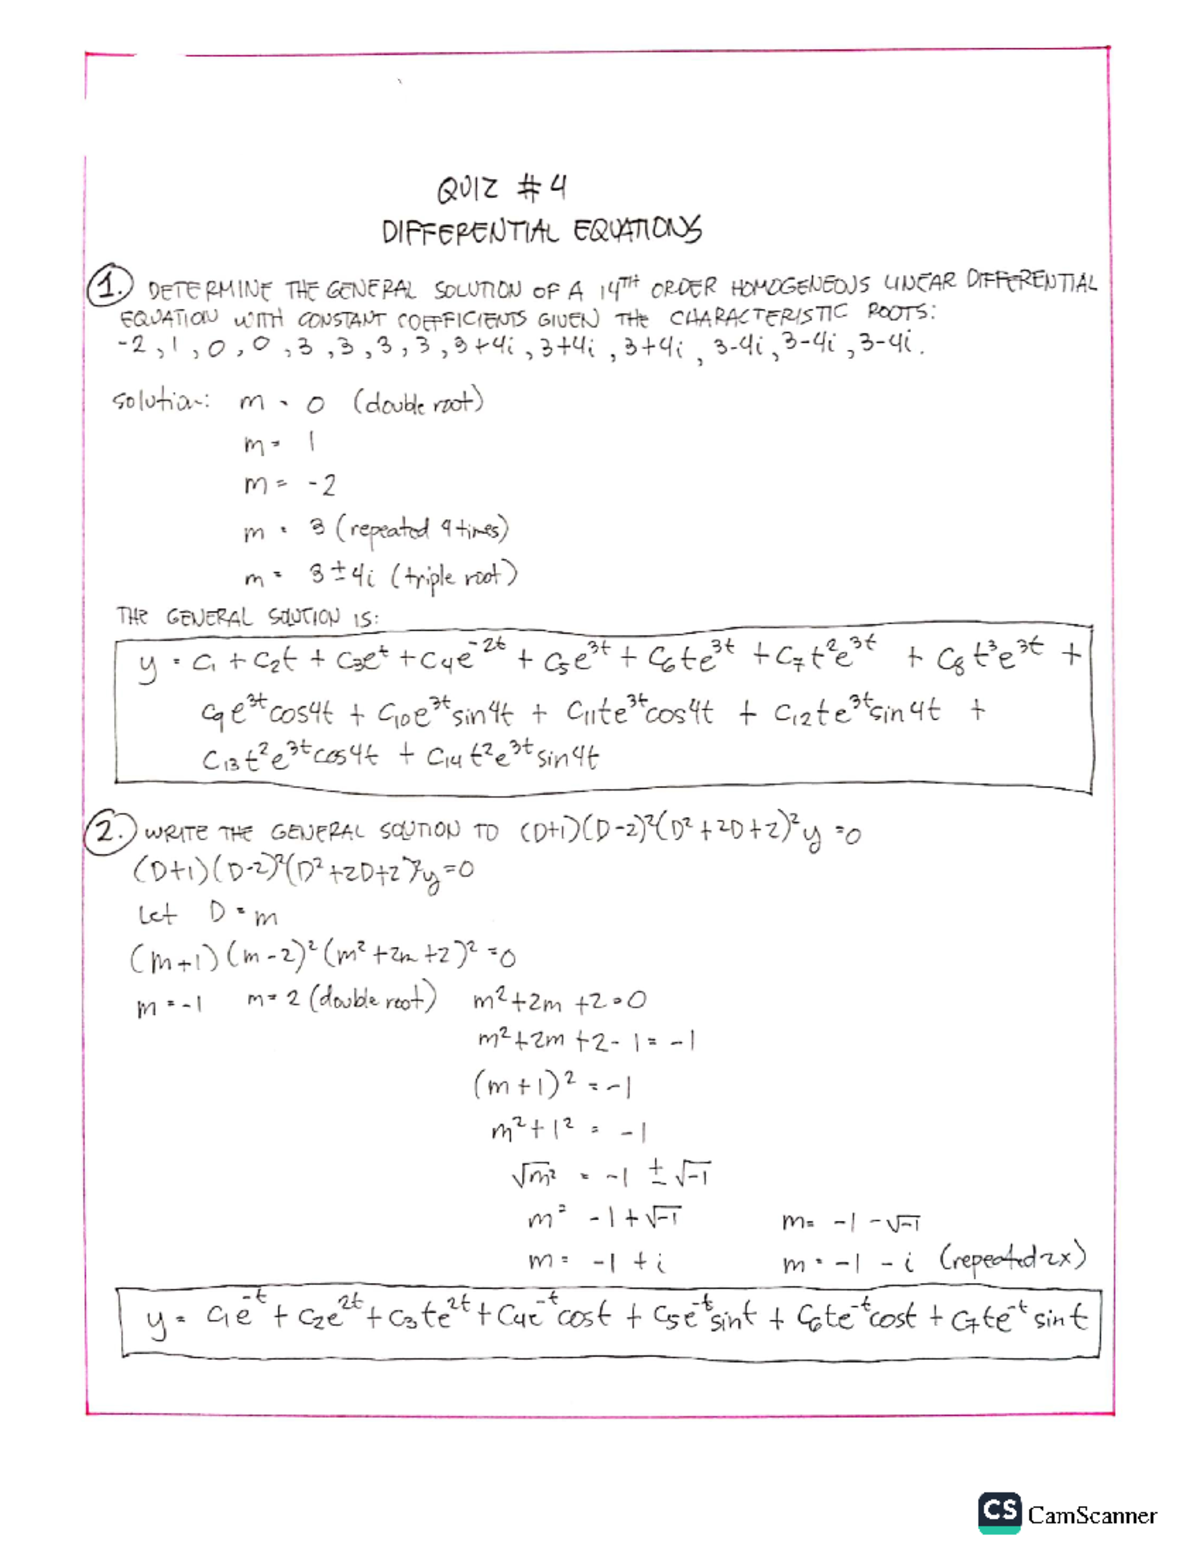 QUIZ #4
DIFFERENTIAL EQUATIONS
1. DETERMINE THE GENERAL SOLUTION OF A 14TH ORDER HOMOGENEOUS LINEAR DIFFERENTIAL
EQUATION WITH CONSTANT COEFFICIENTS GIVEN THE CHARACTERISTIC ROOTS:
-2, 1, 0, 0, 3, 3, 3, 3, 3+4i, 3+4i, 3+4i, 3-4i, 3-4i, 3-4i.
solution: m = 0 (double root)
m = 1
m = -2
m = 3 (repeated 4 times)
m = 3±4i (triple root)
THE GENERAL SOLUTION IS:
y = c₁ + c₂t + c₃eᵗ + c₄e⁻²ᵗ + c₅e³ᵗ + c₆te³ᵗ + c₇t²e³ᵗ + c₈t³e³ᵗ +
c₉e³ᵗcos4t + c₁₀e³ᵗsin4t + c₁₁te³ᵗcos4t + c₁₂te³ᵗsin4t +
c₁₃t²e³ᵗcos4t + c₁₄t²e³ᵗsin4t
2. WRITE THE GENERAL SOLUTION TO (D+1)(D-2)²(D²+2D+2)²y = 0
(D+1)(D-2)²(D²+2D+2)²y = 0
Let D = m
(m+1)(m-2)²(m²+2m+2)² = 0
m = -1 m = 2 (double root) m²+2m+2 = 0
m²+2m+2-1 = -1
(m+1)² = -1
m²+1² = -1
√m² = -1 ± √-1
m = -1+√-1 m = -1-√-1
m = -1 + i m = -1 - i (repeated 2x)
y = c₁e⁻ᵗ + c₂e²ᵗ + c₃te²ᵗ + c₄e⁻ᵗcost + c₅e⁻ᵗsint + c₆te⁻ᵗcost + c₇te⁻ᵗsint
CS CamScanner